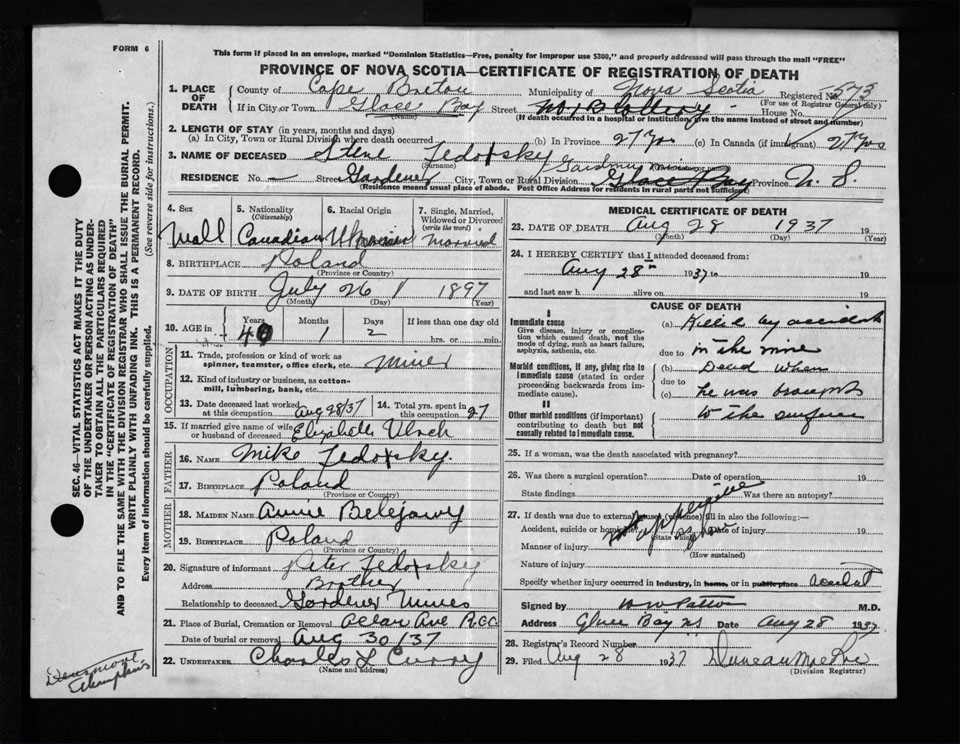 FORM 6
This form if placed in an envelope, marked "Dominion Statistics—Free, penalty for improper use $300," and properly addressed will pass through the mail "FREE"
PROVINCE OF NOVA SCOTIA—CERTIFICATE OF REGISTRATION OF DEATH
1. PLACE OF DEATH
County of Cape Breton Municipality of Nova Scotia Registered No. 573
(For use of Registrar General only)
If in City or Town Glace Bay Street No 1B Colliery House No.
(Name) (If death occurred in a hospital or institution, give the name instead of street and number)
2. LENGTH OF STAY (in years, months and days)
(a) In City, Town or Rural Division where death occurred (b) In Province 27 yrs (c) In Canada (if immigrant) 27 yrs
3. NAME OF DECEASED Steve Fedorsky
(Surname)
Gardener mines
RESIDENCE No. — Street Gardener City, Town or Rural Division Glace Bay Province N. S.
(Residence means usual place of abode. Post Office Address for residents in rural parts not sufficient)
4. Sex
Mall
5. Nationality
(Citizenship)
Canadian
6. Racial Origin
7. Single, Married, Widowed or Divorced
(write the word)
Married
8. BIRTHPLACE Poland
(Province or Country)
9. DATE OF BIRTH July 26 1897
(Month) (Day) (Year)
10. AGE in Years 40 Months 1 Days 2 If less than one day old
hrs. or min.
OCCUPATION
11. Trade, profession or kind of work as spinner, teamster, office clerk, etc. Miner
12. Kind of industry or business, as cotton-mill, lumbering, bank, etc.
13. Date deceased last worked at this occupation Aug 28/37
14. Total yrs. spent in this occupation 27
15. If married give name of wife or husband of deceased Elizabeth Ulrch
FATHER
16. NAME Mike Fedorsky.
17. BIRTHPLACE Poland
(Province or Country)
MOTHER
18. MAIDEN NAME Annie Belejawy
19. BIRTHPLACE Poland
(Province or Country)
20. Signature of informant Peter Fedorsky
Address Brother
Relationship to deceased Gardener Mines
21. Place of Burial, Cremation or Removal Ave
Date of burial or removal Aug 30/37
22. UNDERTAKER Charles L Curry
(Name and address)
MEDICAL CERTIFICATE OF DEATH
23. DATE OF DEATH Aug 28 1937 19
(Month) (Day) (Year)
24. I HEREBY CERTIFY that I attended deceased from:
Aug 28th 1937 to 19
and last saw h alive on 19
CAUSE OF DEATH
I
Immediate cause
Give disease, injury or complication which caused death, not the mode of dying, such as heart failure, asphyxia, asthenia, etc.
Morbid conditions, if any, giving rise to immediate cause (stated in order proceeding backwards from immediate).
II
Other morbid conditions (if important) contributing to death but not causally related to immediate cause.
(a) Killed by accident
due to in the mine
(b) Dead when
due to
(c) he was brought
to the surface
25. If a woman, was the death associated with pregnancy?
26. Was there a surgical operation? Date of operation 19
State findings Was there an autopsy?
27. If death was due to external causes (violence) fill in also the following:—
Accident, suicide or homicide? Date of injury 19
(State which)
Manner of injury
(How sustained)
Nature of injury
Specify whether injury occurred in industry, in home, or in public place accident
Signed by M.D.
Address Glace Bay NS Date Aug 28 1937
28. Registrar's Record Number
29. Filed Aug 28 1937 Duncan MacRae
(Division Registrar)
SEC. 46—VITAL STATISTICS ACT MAKES IT THE DUTY
OF THE UNDERTAKER OR PERSON ACTING AS UNDER-
TAKER TO OBTAIN ALL THE PARTICULARS REQUIRED
IN THE "CERTIFICATE OF REGISTRATION OF DEATH"
AND TO FILE THE SAME WITH THE DIVISION REGISTRAR WHO SHALL ISSUE THE BURIAL PERMIT.
WRITE PLAINLY WITH UNFADING INK. THIS IS A PERMANENT RECORD.
Every item of information should be carefully supplied.
(See reverse side for instructions.)